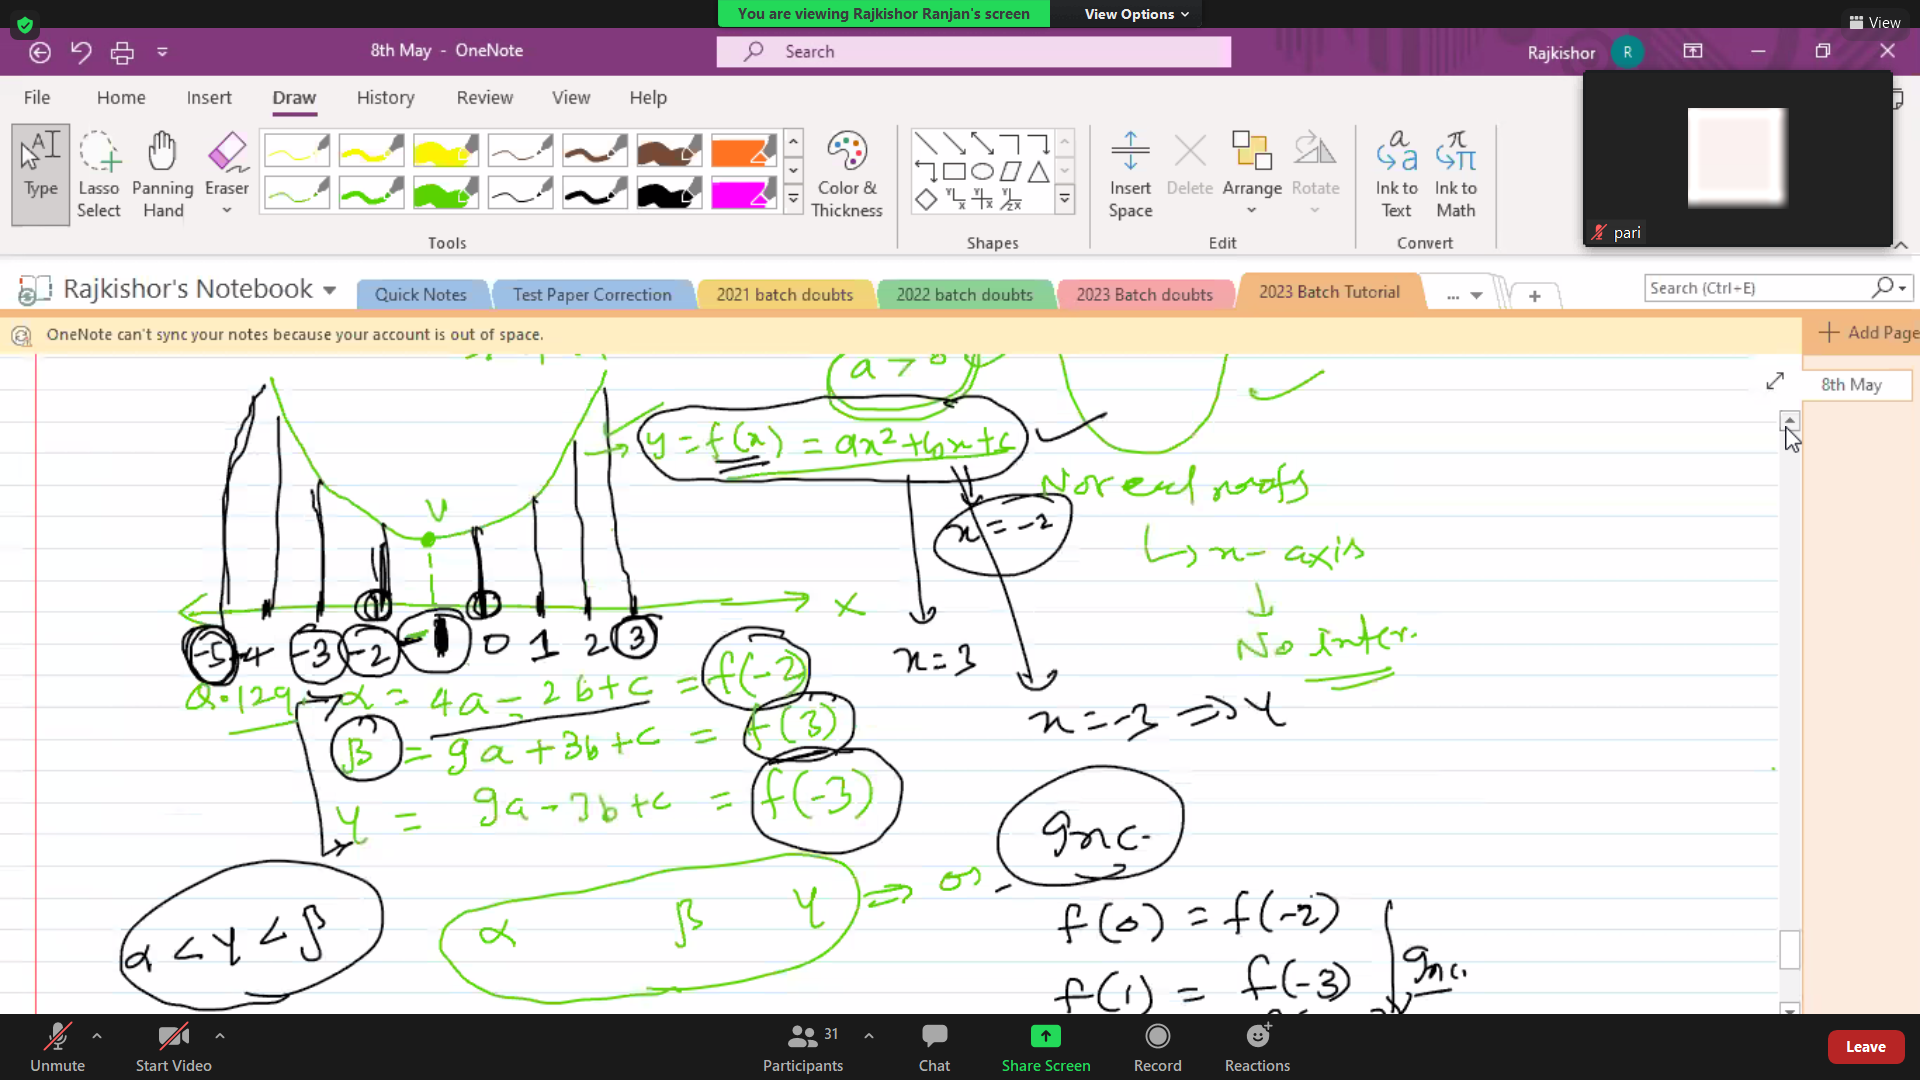 You are viewing Rajkishor Ranjan's screen
View Options
View
8th May - OneNote
Search
Rajkishor
R
File Home Insert Draw History Review View Help
Type
Lasso Select
Panning Hand
Eraser
Color & Thickness
Insert Space
Delete
Arrange
Rotate
Ink to Text
Ink to Math
Tools
Shapes
Edit
Convert
pari
Rajkishor's Notebook
Quick Notes
Test Paper Correction
2021 batch doubts
2022 batch doubts
2023 Batch doubts
2023 Batch Tutorial
...
Search (Ctrl+E)
OneNote can't sync your notes because your account is out of space.
Add Page
8th May
y = f(x) = ax²+bx+c
V
No real roots
x = -2
↳ x-axis
X
-5 -4 -3 -2 -1 0 1 2 3
No inter.
x = 3
Q.129 → α = 4a - 2b + c = f(-2)
x = -3 ⇒ γ
β = 9a + 3b + c = f(3)
γ = 9a - 3b + c = f(-3)
Inc.
α < γ < β
α β γ ⇒
f(0) = f(-2)
Inc.
f(1) = f(-3)
Unmute
Start Video
31
Participants
Chat
Share Screen
Record
Reactions
Leave